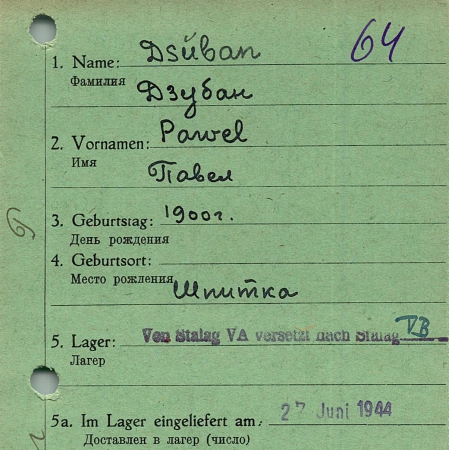 64
1. Name: Dsuban
Фамилия
Дзубан
2. Vornamen: Pawel
Имя
Павел
3. Geburtstag: 1900г.
День рождения
4. Geburtsort:
Место рождения Шпитка
5. Lager: Von Stalag VA versetzt nach Stalag VB
Лагерь
5a. Im Lager eingeliefert am: 27 Juni 1944
Доставлен в лагерь (число)